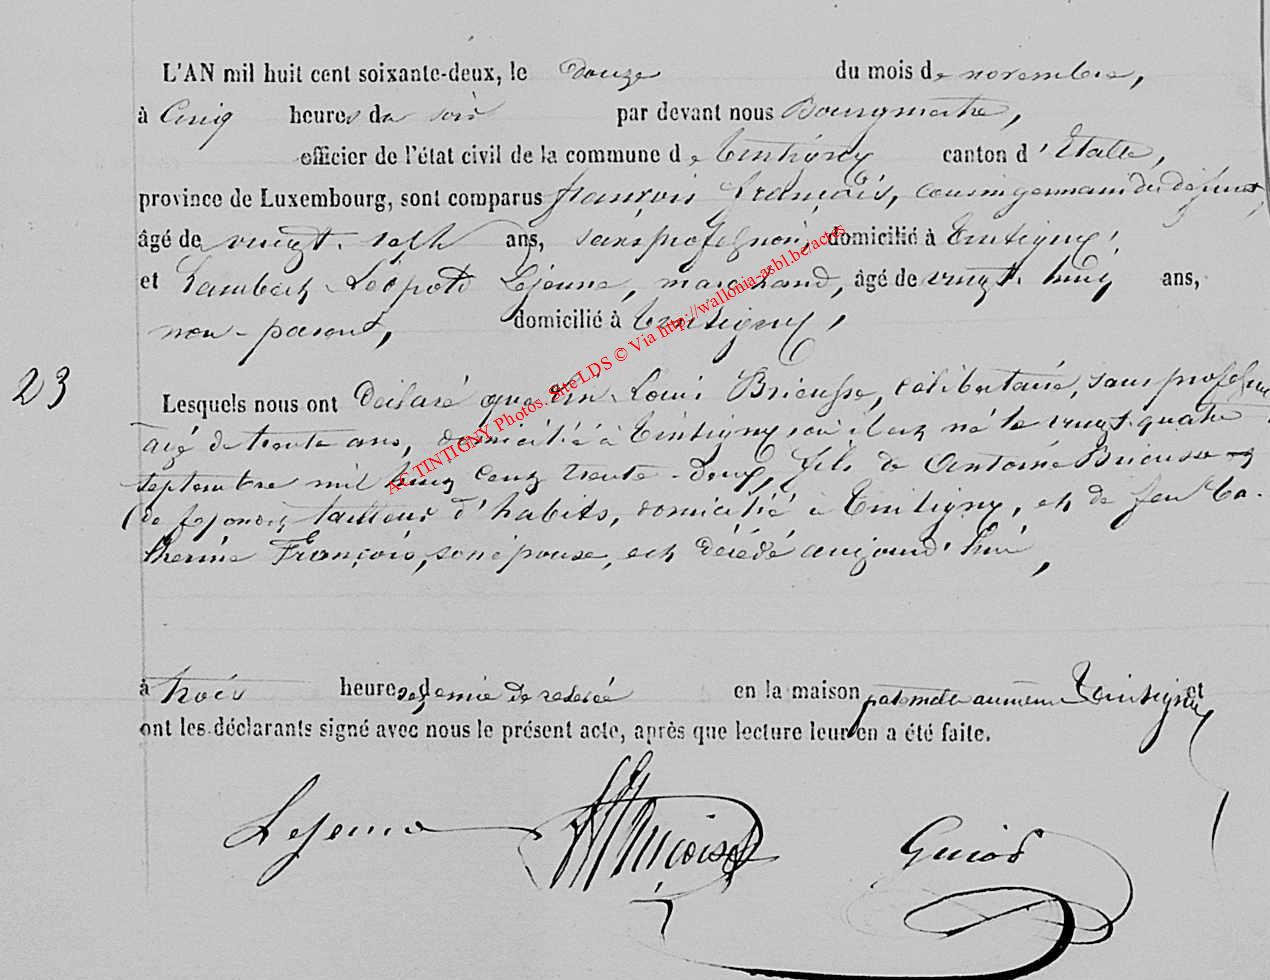 L'AN mil huit cent soixante-deux, le douze du mois de novembre,
à Cinq heures du soir par devant nous Bourgmestre,
officier de l'état civil de la commune de Tintigny canton d'Etalle,
province de Luxembourg, sont comparus françois françois, cousin germain du défunt,
âgé de vingt-sept ans, sans profession, domicilié à Tintigny,
et Lambert Léopold Lejeune, marchand, âgé de vingt-huit ans,
non-parent, domicilié à Tintigny,
23
Lesquels nous ont déclaré que Louis Brieusse, célibataire, sans profession
agé de trente ans, domicilié à Tintigny, où il est né le vingt-quatre
septembre mil huit cent trente-deux, fils de Antoine Brieusse
tailleur d'habits, domicilié à Tintigny, et de feu Ca-
therine François, son épouse, est décédé aujourd'hui,
à trois heures et demie de relevée en la maison au même Tintigny et
ont les déclarants signé avec nous le présent acte, après que lecture leur en a été faite.
Lejeune François Guiot
AC TINTIGNY Photos. Site LDS © Via http://wallonia-asbl.be/actes